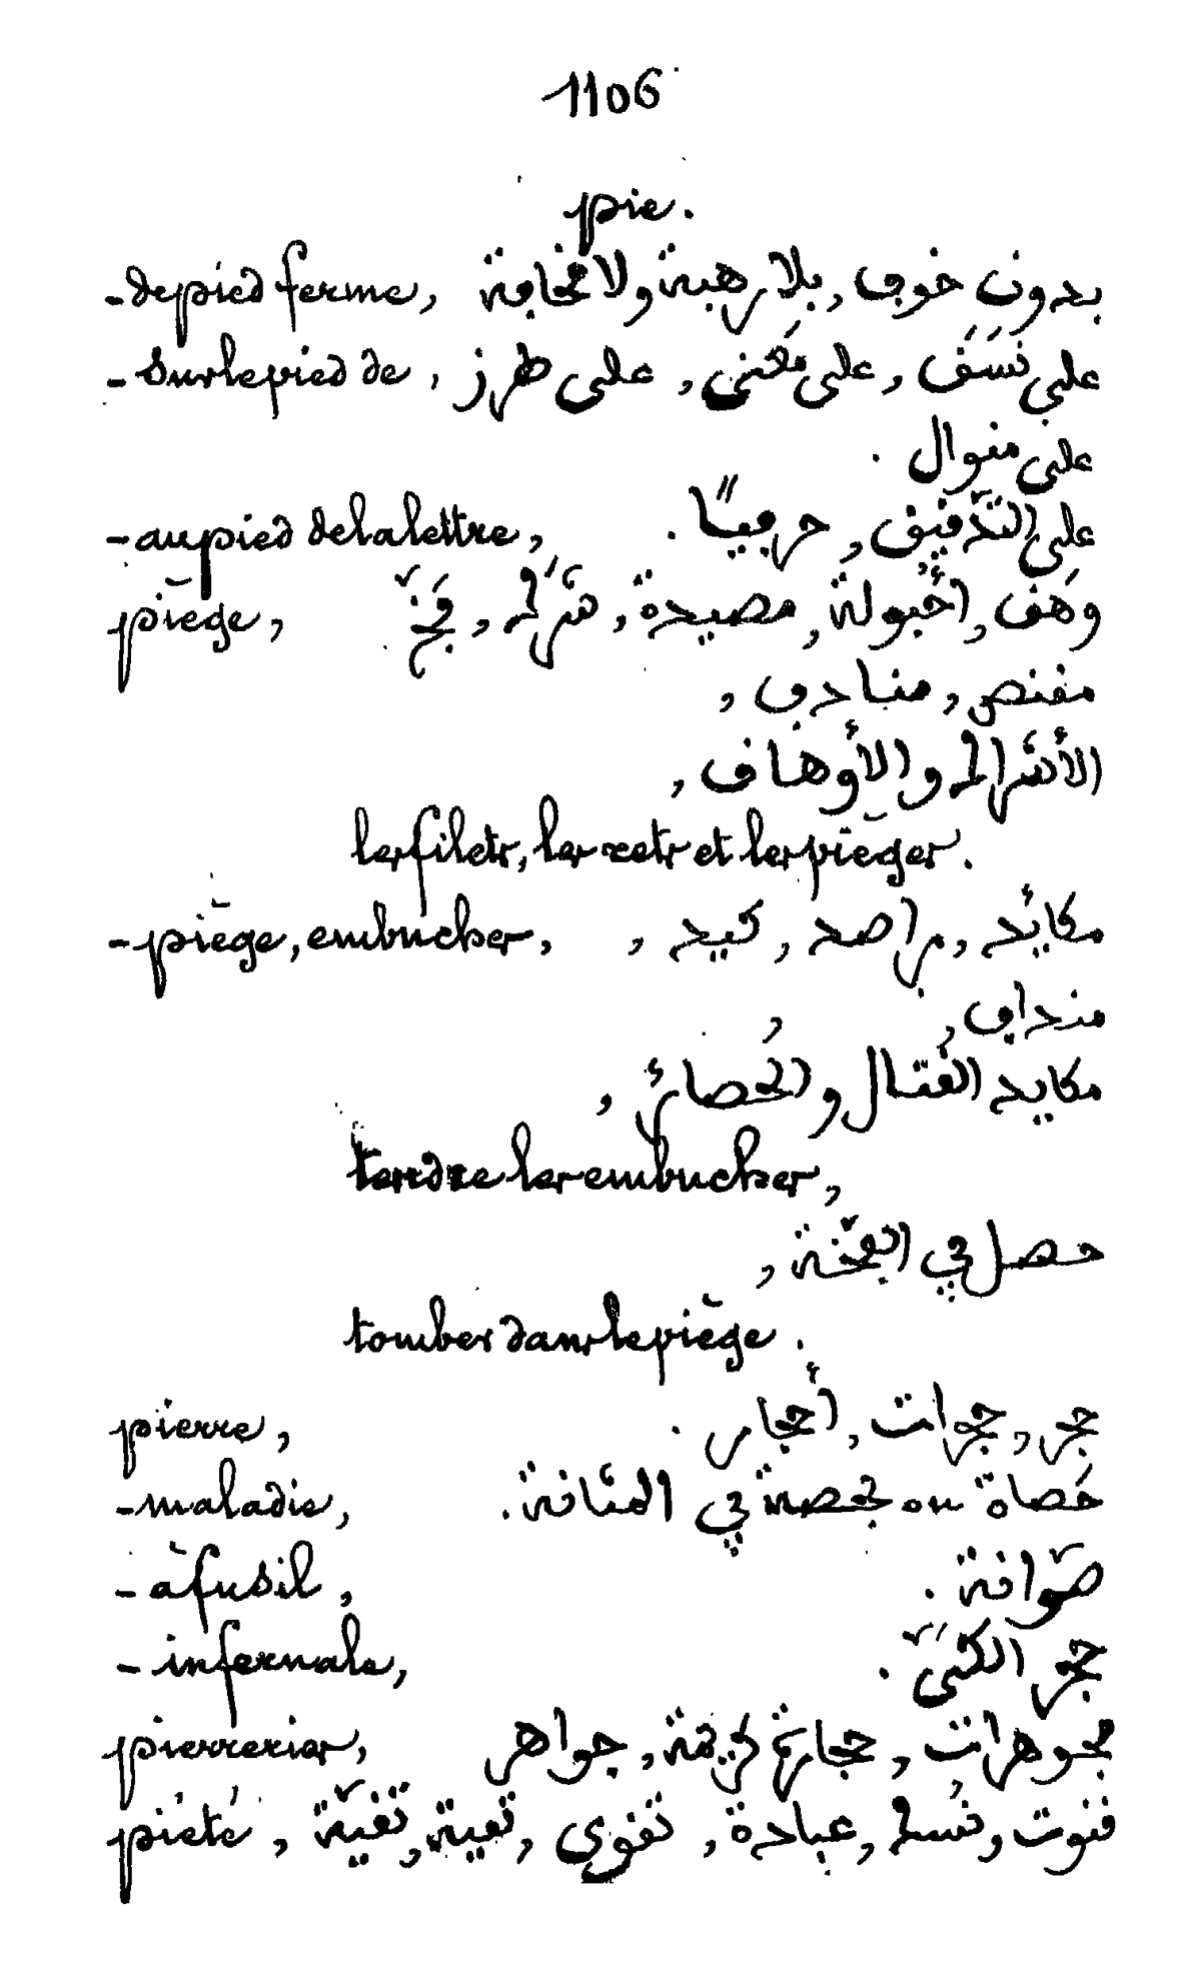 1106
pie.
- de pied ferme, بدون خوف, بلا رهبة ولا مخافة
- sur le pied de, على نَسَق, على مَعْنى, على طرز
على منوال.
- au pied de la lettre, على التَّدْقيق, حرفيًّا.
piège, وَهَق, أُحْبولة, مصيدة, شَرَك, فَخّ
مقنص, منادف,
الأشْراك والأوهاق,
les filets, les rets et les pièges.
- piège, embûches, مكائد, مراصد, كيد,
منداف,
مكايد القتال والحصائر,
tendre les embûches,
حصل في الفخّة,
tomber dans le piège.
pierre, حجر, حجرات, أحجار.
- maladie, حَصاة ou حصة في المثانة.
- à fusil, صَوّانة.
- infernale, حجر الكَيّ.
pierreries, مجوهرات, حجارة كريمة, جواهر
piété, قنوت, نُسك, عبادة, تقوى, تقية, تقيّة